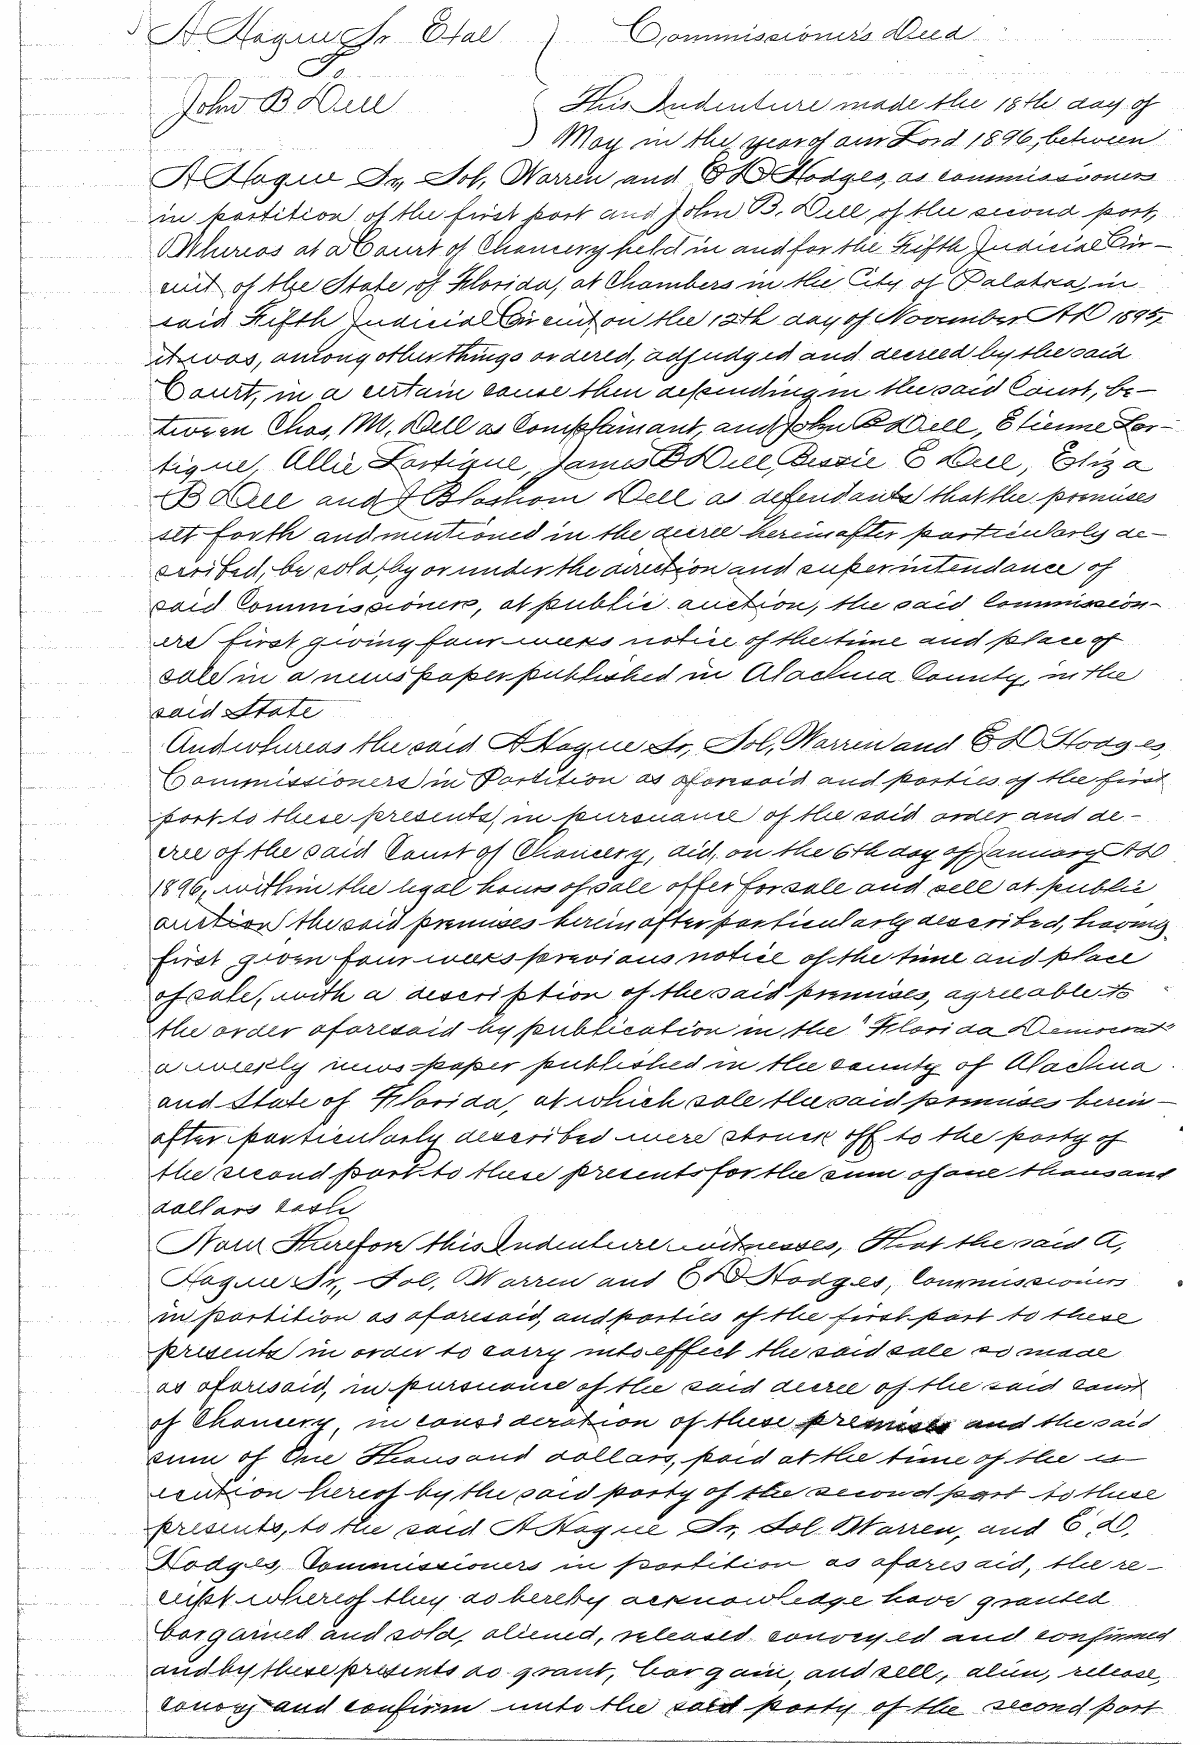 A Hague Sr Etal ) Commissioner's Deed
To
John B Dell ) This Indenture made the 18th day of
May in the year of our Lord 1896, between
A Hague Sr, Sol, Warren and E D Hodges, as commissioners
in partition of the first part and John B. Dell, of the second part,
Whereas at a Court of Chancery held in and for the Fifth Judicial Cir-
cuit of the State of Florida, at Chambers in the City of Palatka, in
said Fifth Judicial Circuit on the 12th day of November AD 1895,
it was, among other things ordered, adjudged and decreed by the said
Court, in a certain cause then depending in the said Court, be-
tween Chas, M. Dell as Complainant, and John B Dell, Etienne Lar-
tigue, Allie Lartigue, James B Dell, Bessie E Dell, Eliza
B Dell and J Blashom Dell as defendants that the premises
set forth and mentioned in the decree hereinafter particularly de-
scribed, be sold, by or under the direction and superintendance of
said Commissioners, at public auction, the said Commission-
ers first giving four weeks notice of the time and place of
sale in a newspaper published in Alachua County, in the
said State
And whereas the said A Hague Sr, Sol, Warren and E D Hodges,
Commissioners in Partition as aforesaid and parties of the first
part to these presents, in pursuance of the said order and de-
cree of the said Court of Chancery, did, on the 6th day of January AD
1896, within the legal hours of sale offer for sale and sell at public
auction the said premises hereinafter particularly described, having
first given four weeks previous notice of the time and place
of sale, with a description of the said premises, agreeable to
the order aforesaid by publication in the "Florida Democrat"
a weekly news paper published in the county of Alachua
and State of Florida, at which sale the said premises herein-
after particularly described were struck off to the party of
the second part to these presents for the sum of one thousand
dollars cash
Now Therefore this Indenture witnesses, That the said A,
Hague Sr, Sol, Warren and E D Hodges, Commissioners
in partition as aforesaid, and parties of the first part to these
presents in order to carry into effect the said sale so made
as aforesaid, in pursuance of the said decree of the said court
of Chancery, in consideration of these premises and the said
sum of One Thousand dollars, paid at the time of the ex-
ecution hereof by the said party of the second part to these
presents, to the said A Hague Sr, Sol Warren, and E. D,
Hodges, Commissioners in partition as aforesaid, the re-
ceipt whereof they do hereby acknowledge have granted
bargained and sold, aliened, released conveyed and confirmed
and by these presents do grant, bargain, and sell, alien, release,
convey and confirm unto the said party of the second part